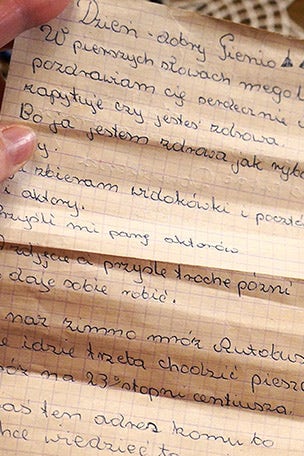 Dzień-dobry Gienio
W pierwszych słowach mego l
pozdrawiam cię serdecznie
zapytuje czy jesteś zdrowa.
Bo ja jestem zdrowa jak ryb
y.
zbieram widokówki i pocztó
i aktory.
rzyśli mi parę aktorów
zdjęcie a przyśle trochę późni
daje sobie robić.
nas zimno mróz Autobus
ie idzie trzeba chodzić piesz
róz na 23° stopni centiusza
aś ten adres komu to
hce wiedzieć to